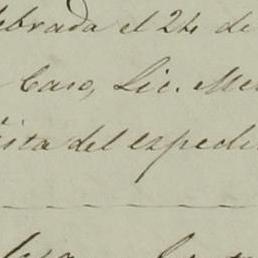 ebrada el 24 de
Caso, Lic. Me
ista del expedi